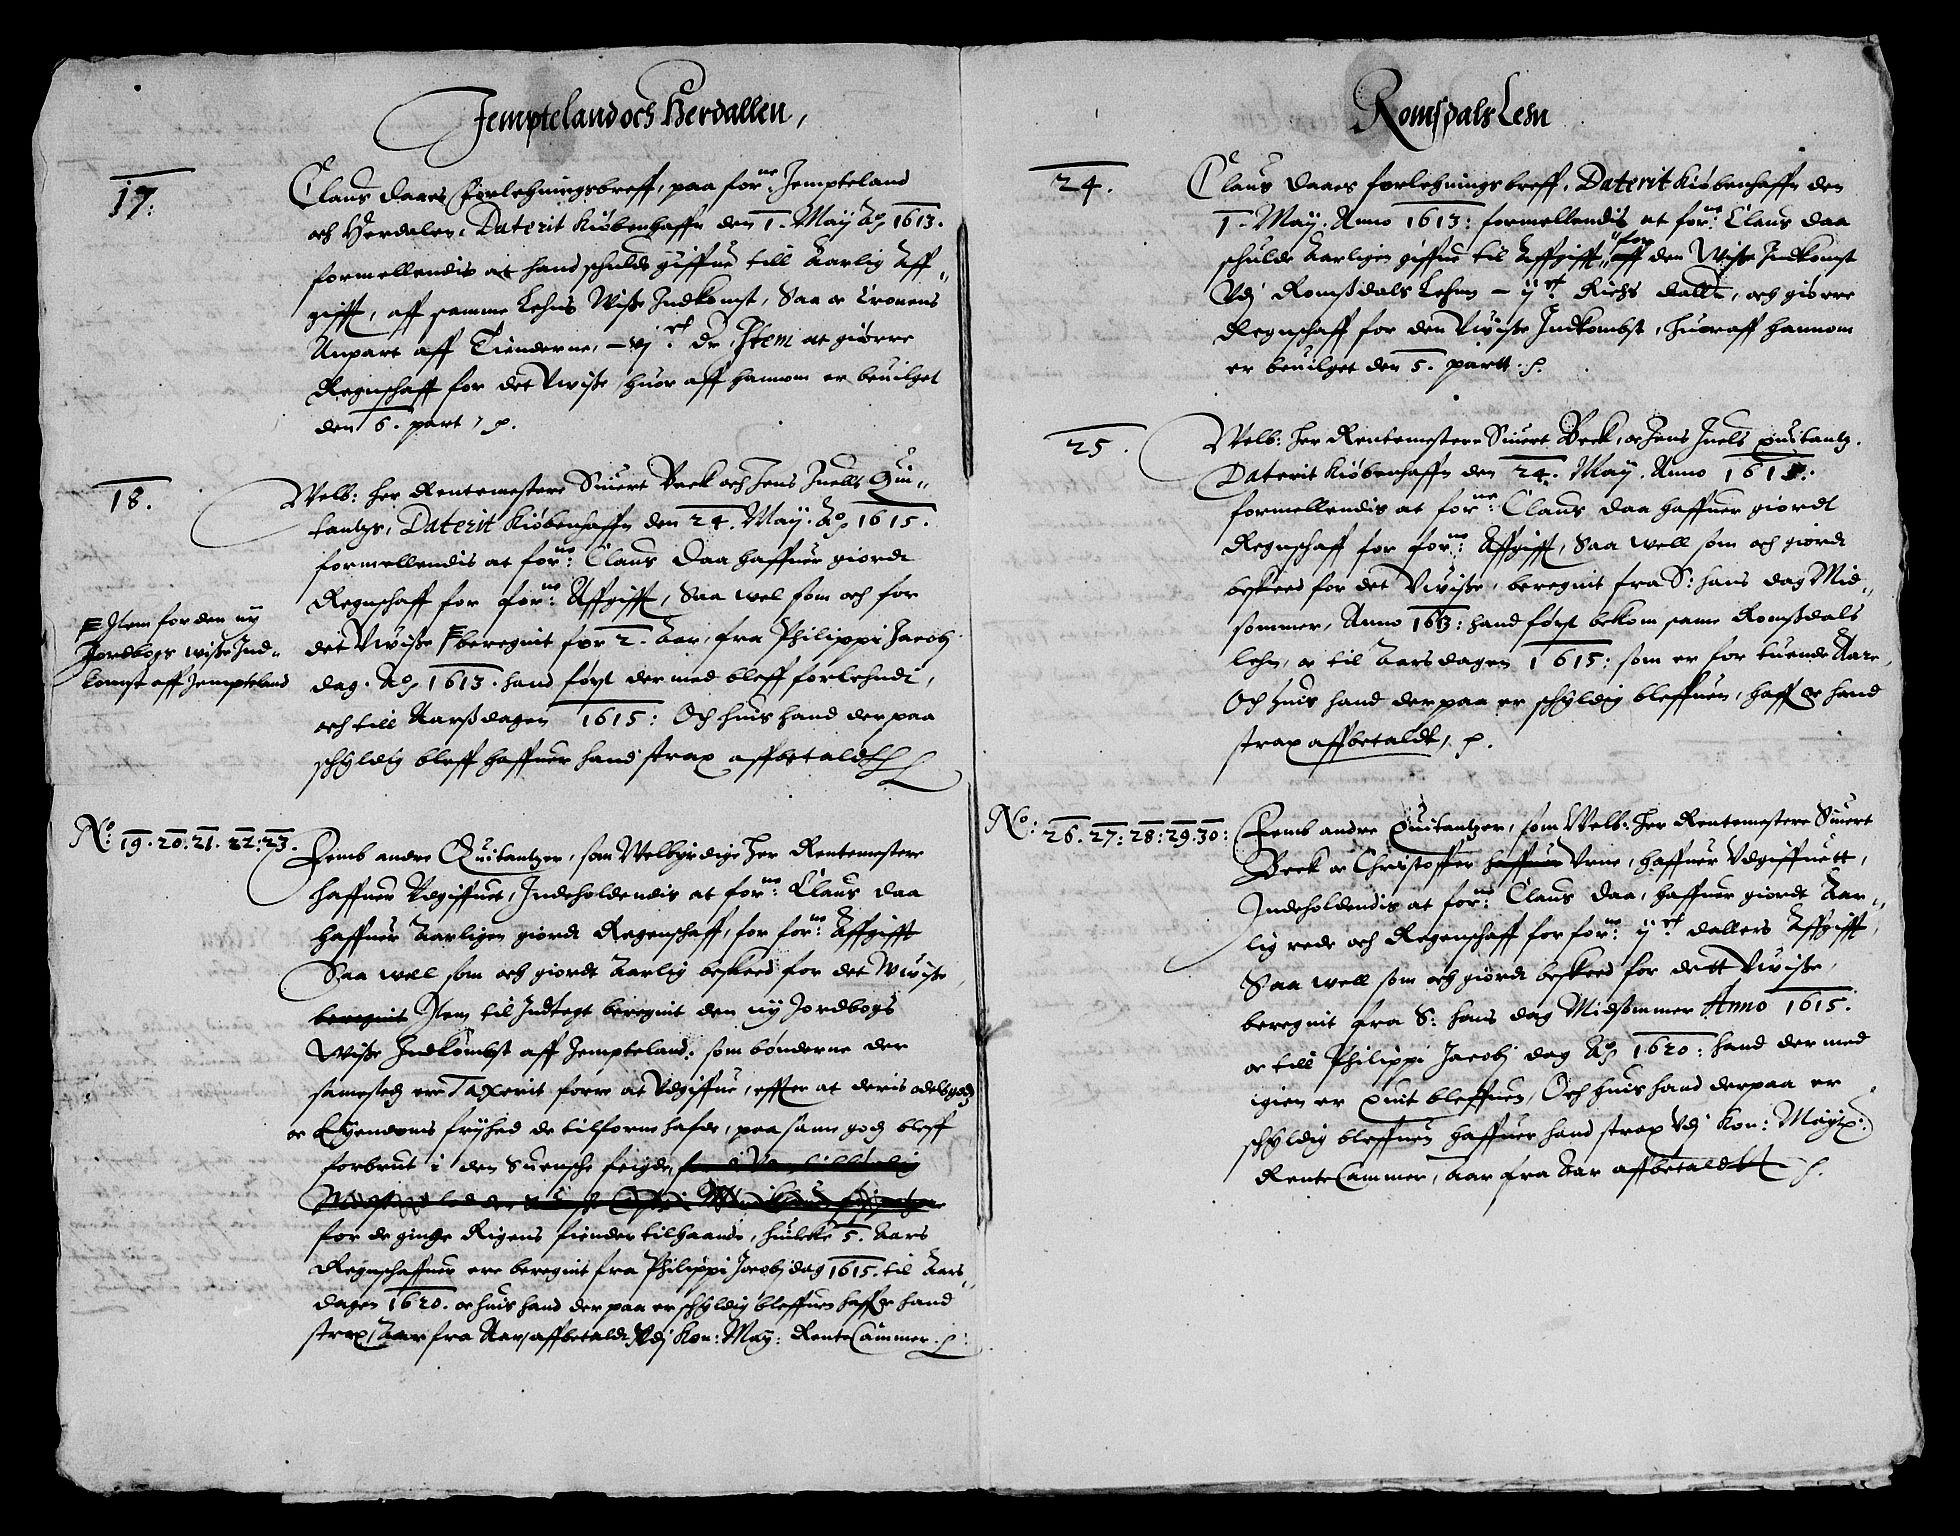 Jempteland och Herdallen,
17:
Claus Daaes Forlehningsbreff, paa forne: Jempteland
och Herdalen, Daterit Kiøbenhaffn den 1. May Ao 1613.
formellendis at hand schulde giffue till Aarlig Aff„
gifft, aff samme Lehns Wisse Indkomst, Saa oc Cronens
Anpart aff Tienderne, – vj c dr, Item at giørre
Regnschaff for det Vwisse huor aff hannom er beuilget
den 6. part, p.
18.
Welb: Her Rentemestere Siuert Beck och Jens Juells Qui„
tantzs, Daterit Kiøbenhaffn den 24. May. Ao 1615.
formellendis at forne: Claus Daa haffuer giordt
Regnschaff for forne: Affgifft, Saa wel som och for
det Vwisse F beregnit for 2. Aar, fra Philippi Jacobj
dag. Ao 1613. hand først der med bleff forlehndt,
och till Aarssdagen 1615: Och huis hand der paa
schyldig bleff haffuer hand strax affbetaldt
F Item for den ny
Jordbogs wisse Ind„
komst aff Jempteland
No: 19. 20. 21. 22: 23.
Femb andre Quitantzer, som Welbyrdige Her Rentemestere
haffuer Vdgiffuet, Indeholdendis at forne: Claus Daa
haffuer Aarligen giordt Regenschaff, for forne: Affgifft
Saa well som och giordt Aarlig beskeed for det Vwisse,
beregnit Item til Indtegt beregnit den ny Jordbogs
Wisse Indkombst aff Jempteland, som bønderne der
samestedz ere Taxerit forre at Vdgiffue, effter at deris odelsgodz
oc Eyendoms fryhed de tilforne hafde, paa samme godz bleff
forbrut i den Suensche feigde,
for de ginge Rigens fiender tilhaande, huilcke 5. Aars
Regnschaffuer ere beregnit fra Philippi Jacobj dag 1615. til Aars„
dagen 1620. oc huis hand der paa er schyldig bleffuen haffr hand
strax, Aar fra Aar, affbetaldt Vdj Kon: May: Rente Cammer. p:
Romsdals Lehn
24.
Claus Daaes forlehningsbreff, Daterit Kiøbenhaffn den
1. May. Anno 1613: formellendis at forne: Claus Daa
schulde Aarligen giffue til Affgifft „for aff den Wisse Indkomst
Vdj Romssdals Lehn – ij c Richs daller, och giørre
Regnschaff for den Vwisse Indkombst, huoraff hannom
er beuilget den 5. partt. p.
25.
Welb: Her Rentemestere Siuert Beck, oc Jens Juels Quitantz.
Daterit Kiøbenhaffn den 24. May. Anno 1615:
formellendis at forne: Claus Daa haffuer giordt
Regnschaff for forne: Affgifft, Saa well som och giordt
beskeed for det Vwisse, beregnit fra S: Hans dag Mid„
sommer, Anno 1613: hand først bekom same Romssdals
lehn, oc til Aarsdagen 1615: som er for tuende Aar,
Och huis hand derpaa er schyldig bleffuen, haffr hand
strax affbetaldt, p.
No: 26. 27: 28: 29. 30:
Femb andre Quitantzer, som Welb: Her Rentemestere Siuert
Beck oc Christoffer haffuer Vrne, haffuer Vdgiffuett,
Indeholdendis at forne: Claus Daa, haffuer giordt Aar„
lig rede och Regenschaff for forne: ij c dallers Affgifft,
Saa well som och giordt beskeed for dett Vwisse,
beregnit fra S: Hans dag Midsommer Anno 1615.
oc till Philippi Jacobj dag Ao 1620: hand der med
igien er quit bleffuen, Och huis hand derpaa er
schyldig bleffuen haffuer hand strax Vdj Kon: Maytz:
Rente Cammer, Aar fra Aar affbetaldt p.